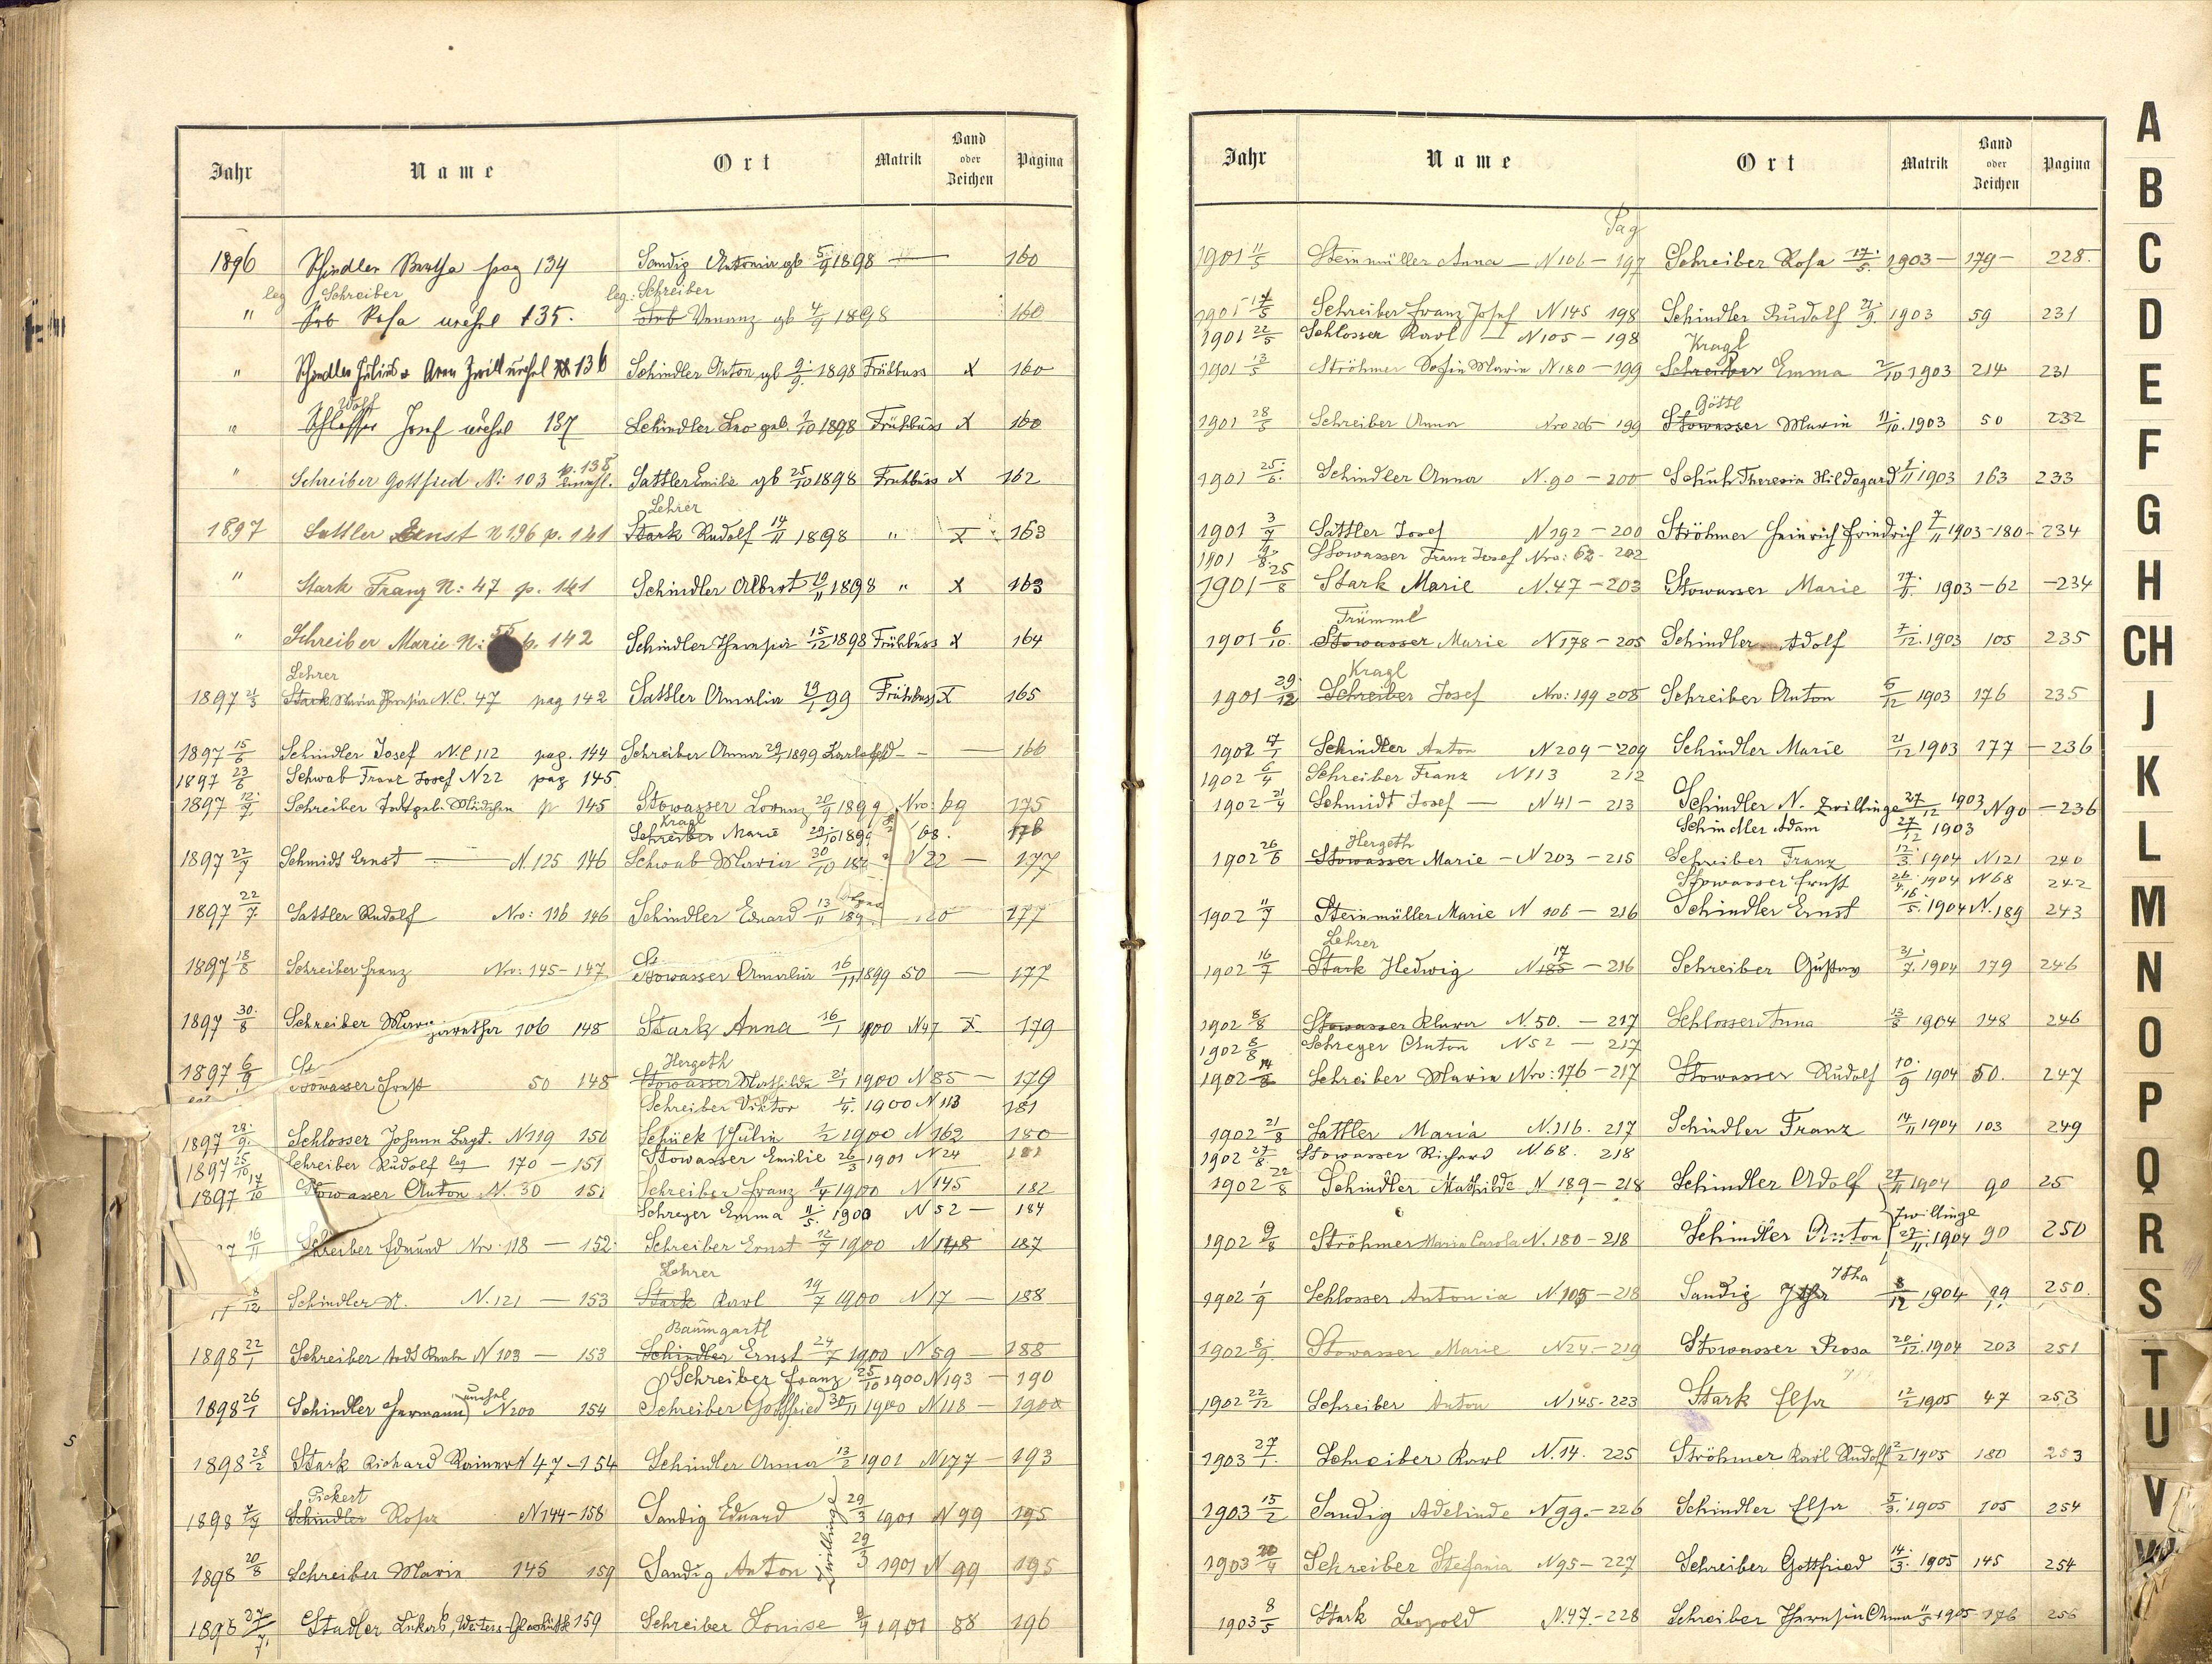 Jahr Name Ort Matrik Band oder Zeichen Pagina
1896 Schindler Bertha pag 134 Sandig Antonia gb 5/9 1898 — 160
leg Schreiber leg: Schreiber
" Rosa unehel 135. Venanz gb 4/9 1898 160
" Schindler Julius u. Zwill unehel 136 Schindler Anton gb 9/9. 1898 Frühbuss X 160
Wolf
" Schlosser Josef unehel 137 Schindler Leo geb. 1/10 1898 Frühbuss X 160
p. 138
" Schreiber Gottfried N: 103 Sattler Emilie gb 25/10 1898 Frühbuss X 162
Lehrer
1897 Sattler Ernst N 196 p. 141 Stark Rudolf 14/11 1898 " X 163
" Stark Franz N: 47 p. 141 Schindler Albert 19/11 1898 " X 163
" Schreiber Marie N: 55 p. 142 Schindler Theresia 15/12 1898 Frühbuss X 164
Lehrer
1897 21/3 Stark Maria Theresia N.C. 47 pag 142 Sattler Amalia 19/1 99 Frühbuss X 165
1897 15/6 Schindler Josef N.C 112 pag. 144 Schreiber Anna 29/1 1899 — — 166
1897 23/6 Schwab Franz Josef N22 pag 145
1897 12/7 Schreiber todtgeb. Mädchen p 145 Stowasser Lorenz 20/9 1899 Nro: 69 175
Kragl
Schreiber Marie 29/10 189 68. 176
1897 22/7 Schmidt Ernst — N. 125 146 Schwab Maria 30/10 N 22 — 177
1897 22/7 Sattler Rudolf Nro: 116 146 Schindler Eduard 13/11 189 177
1897 18/8 Schreiber Franz Nro: 145 - 147 Stowasser Amalia 16/11 1899 50 — 177
1897 30./8 Schreiber 106 148 Stark Anna 16/1 1900 N47 X 179
Hergeth
1897 6/9 Stowasser Ernst 50 148 Stowasser Mathilde 21/1 1900 N 85 — 179
Schreiber Viktor 1900 N 113 181
1897 28./9. Schlosser Johann Bapt. N119 150 Schück Julia 1/2 1900 N 162 180
1897 25/10 Schreiber Rudolf leg 170 — 151 Stowasser Emilie 26/3 1901 N 24 181
1897 17/10 Stowasser Anton N. 30 151 Schreiber Franz 11/4 1900 N 145 182
Schreyer Emma 11/5. 1900 N 52 — 184
16/11 Schreiber Edmund Nro: 118 — 152 Schreiber Ernst 12/7 1900 N 148 187
Lehrer
8/12 Schindler N. N. 121 — 153 Stark Karl 19/7 1900 N 17 — 188
Baumgartl
1898 22/1 Schreiber todt Knabe N 103 — 153 Schindler Ernst 24/7 1900 N 59 — 188
Schreiber Franz 25/10 1900 N193 — 190
unehel
1898 26/1 Schindler Hermann N 200 154 Schreiber Gottfried 30/11 1900 N 118 — 190
1898 28/2 Stark Richard Rainer N 47 - 154 Schindler Anna 13/2 1901 N177 — 193
Pickert
1898 4/7 Schindler Rosa N 144 - 158 Sandig Eduard 29/3 1901 N 99 195
Zwillinge
1898 20/8 Schreiber Maria 145 159 Sandig Anton 29/3 1901 N 99 195
1898 27/7. Stadler 159 Schreiber Louise 9/4 1901 88 196
Jahr Name Ort Matrik Band oder Zeichen Pagina
Pag
1901 11/5 Steinmüller Anna — N 106 - 197 Schreiber Rosa 17./5. 1903 — 179 — 228.
1901 17/5 Schreiber Franz Josef N 145 198 Schindler Rudolf 21./9. 1903 59 231
1901 22/5 Schlosser Karl — N 105 - 198
Kragl
1901 13/5 Ströhmer Sofia Maria N 180 - 199 Schreiber Emma 2/10 1903 214 231
Göttl
1901 28/5 Schreiber Anna Nro 205 199 Stowasser Maria 11./10. 1903 50 232
1901 25./6. Schindler Anna N. 90 - 200 Schuh Theresia Hildegard 1/11 1903 163 233
1901 3/7 Sattler Josef N 192 - 200 Ströhmer Heinrich Friedrich 7/11 1903 - 180 - 234
1901 9./8. Stowasser Franz Josef Nro: 62 - 202
1901 25/8 Stark Marie N. 47 - 203 Stowasser Marie 17./11. 1903 - 62 - 234
Trümml
1901 6/10. Stowasser Marie N 178 - 205 Schindler Adolf 7./12. 1903 105 235
Kragl
1901 29./12 Schreiber Josef Nro: 199 208 Schreiber Anton 6/12 1903 176 235
1902 17/1 Schindler Anton N 209 - 209 Schindler Marie 21/12 1903 177 - 236
1902 6/4 Schreiber Franz N 113 212
1902 21/4 Schmidt Josef — N 41 - 213 Schindler N. Zwillinge 27/12 1903 N 90 - 236
Schindler Adam 27/12 1903
Hergeth
1902 26/6 Stowasser Marie - N 203 - 215 Schreiber Franz 12./3. 1904 N 121 240
Stowasser Ernst 26/4. 1904 N 68 242
1902 11/7 Steinmüller Marie N 106 - 216 Schindler Ernst 16./5. 1904 N. 189 243
Lehrer
17
1902 16/7 Stark Hedwig N 185 - 216 Schreiber Gustav 31./7. 1904 179 246
1902 8/8 Stowasser Klara N. 50. - 217 Schlosser Anna 13/8 1904 148 246
1902 8/8 Schreyer Anton N 52 - 217
1902 14/8 Schreiber Maria Nro: 176 - 217 Stowasser Rudolf 10./9 1904 50. 247
1902 21/8 Sattler Maria N. 116. 217 Schindler Franz 14/11 1904 103 249
1902 27/8 Stowasser Richard N. 68. 218
1902 22/8 Schindler Mathilde N 189 - 218 Schindler Adolf 27/11 1904 90 25
Zwillinge
1902 9/8 Ströhmer Maria Carola N. 180 - 218 Schindler Anton 27/11. 1904 90 250
Itha
1902 1/9 Schlosser Antonia N 105 - 218 Sandig 8/12 1904 99 250.
1902 8./9. Stowasser Marie N 24. - 219 Stowasser Rosa 20./12. 1904 203 251
1902 22/12 Schreiber Anton N 145 - 223 Stark Elsa 12/1 1905 47 253
1903 27/1. Schreiber Karl N. 14. 225 Ströhmer Karl Rudolf 2/2 1905 180 253
1903 15/2 Sandig Adelinde N 99. - 226 Schindler Elsa 5/3. 1905 105 254
1903 20/4 Schreiber Stefania N 95 - 227 Schreiber Gottfried 14./3. 1905 145 254
1903 8/5 Stark Leopold N. 47. - 228 Schreiber Theresia Anna 11/5 1905 176 256
A
B
C
D
E
F
G
H
CH
J
K
L
M
N
O
P
Q
R
S
T
U
V
W